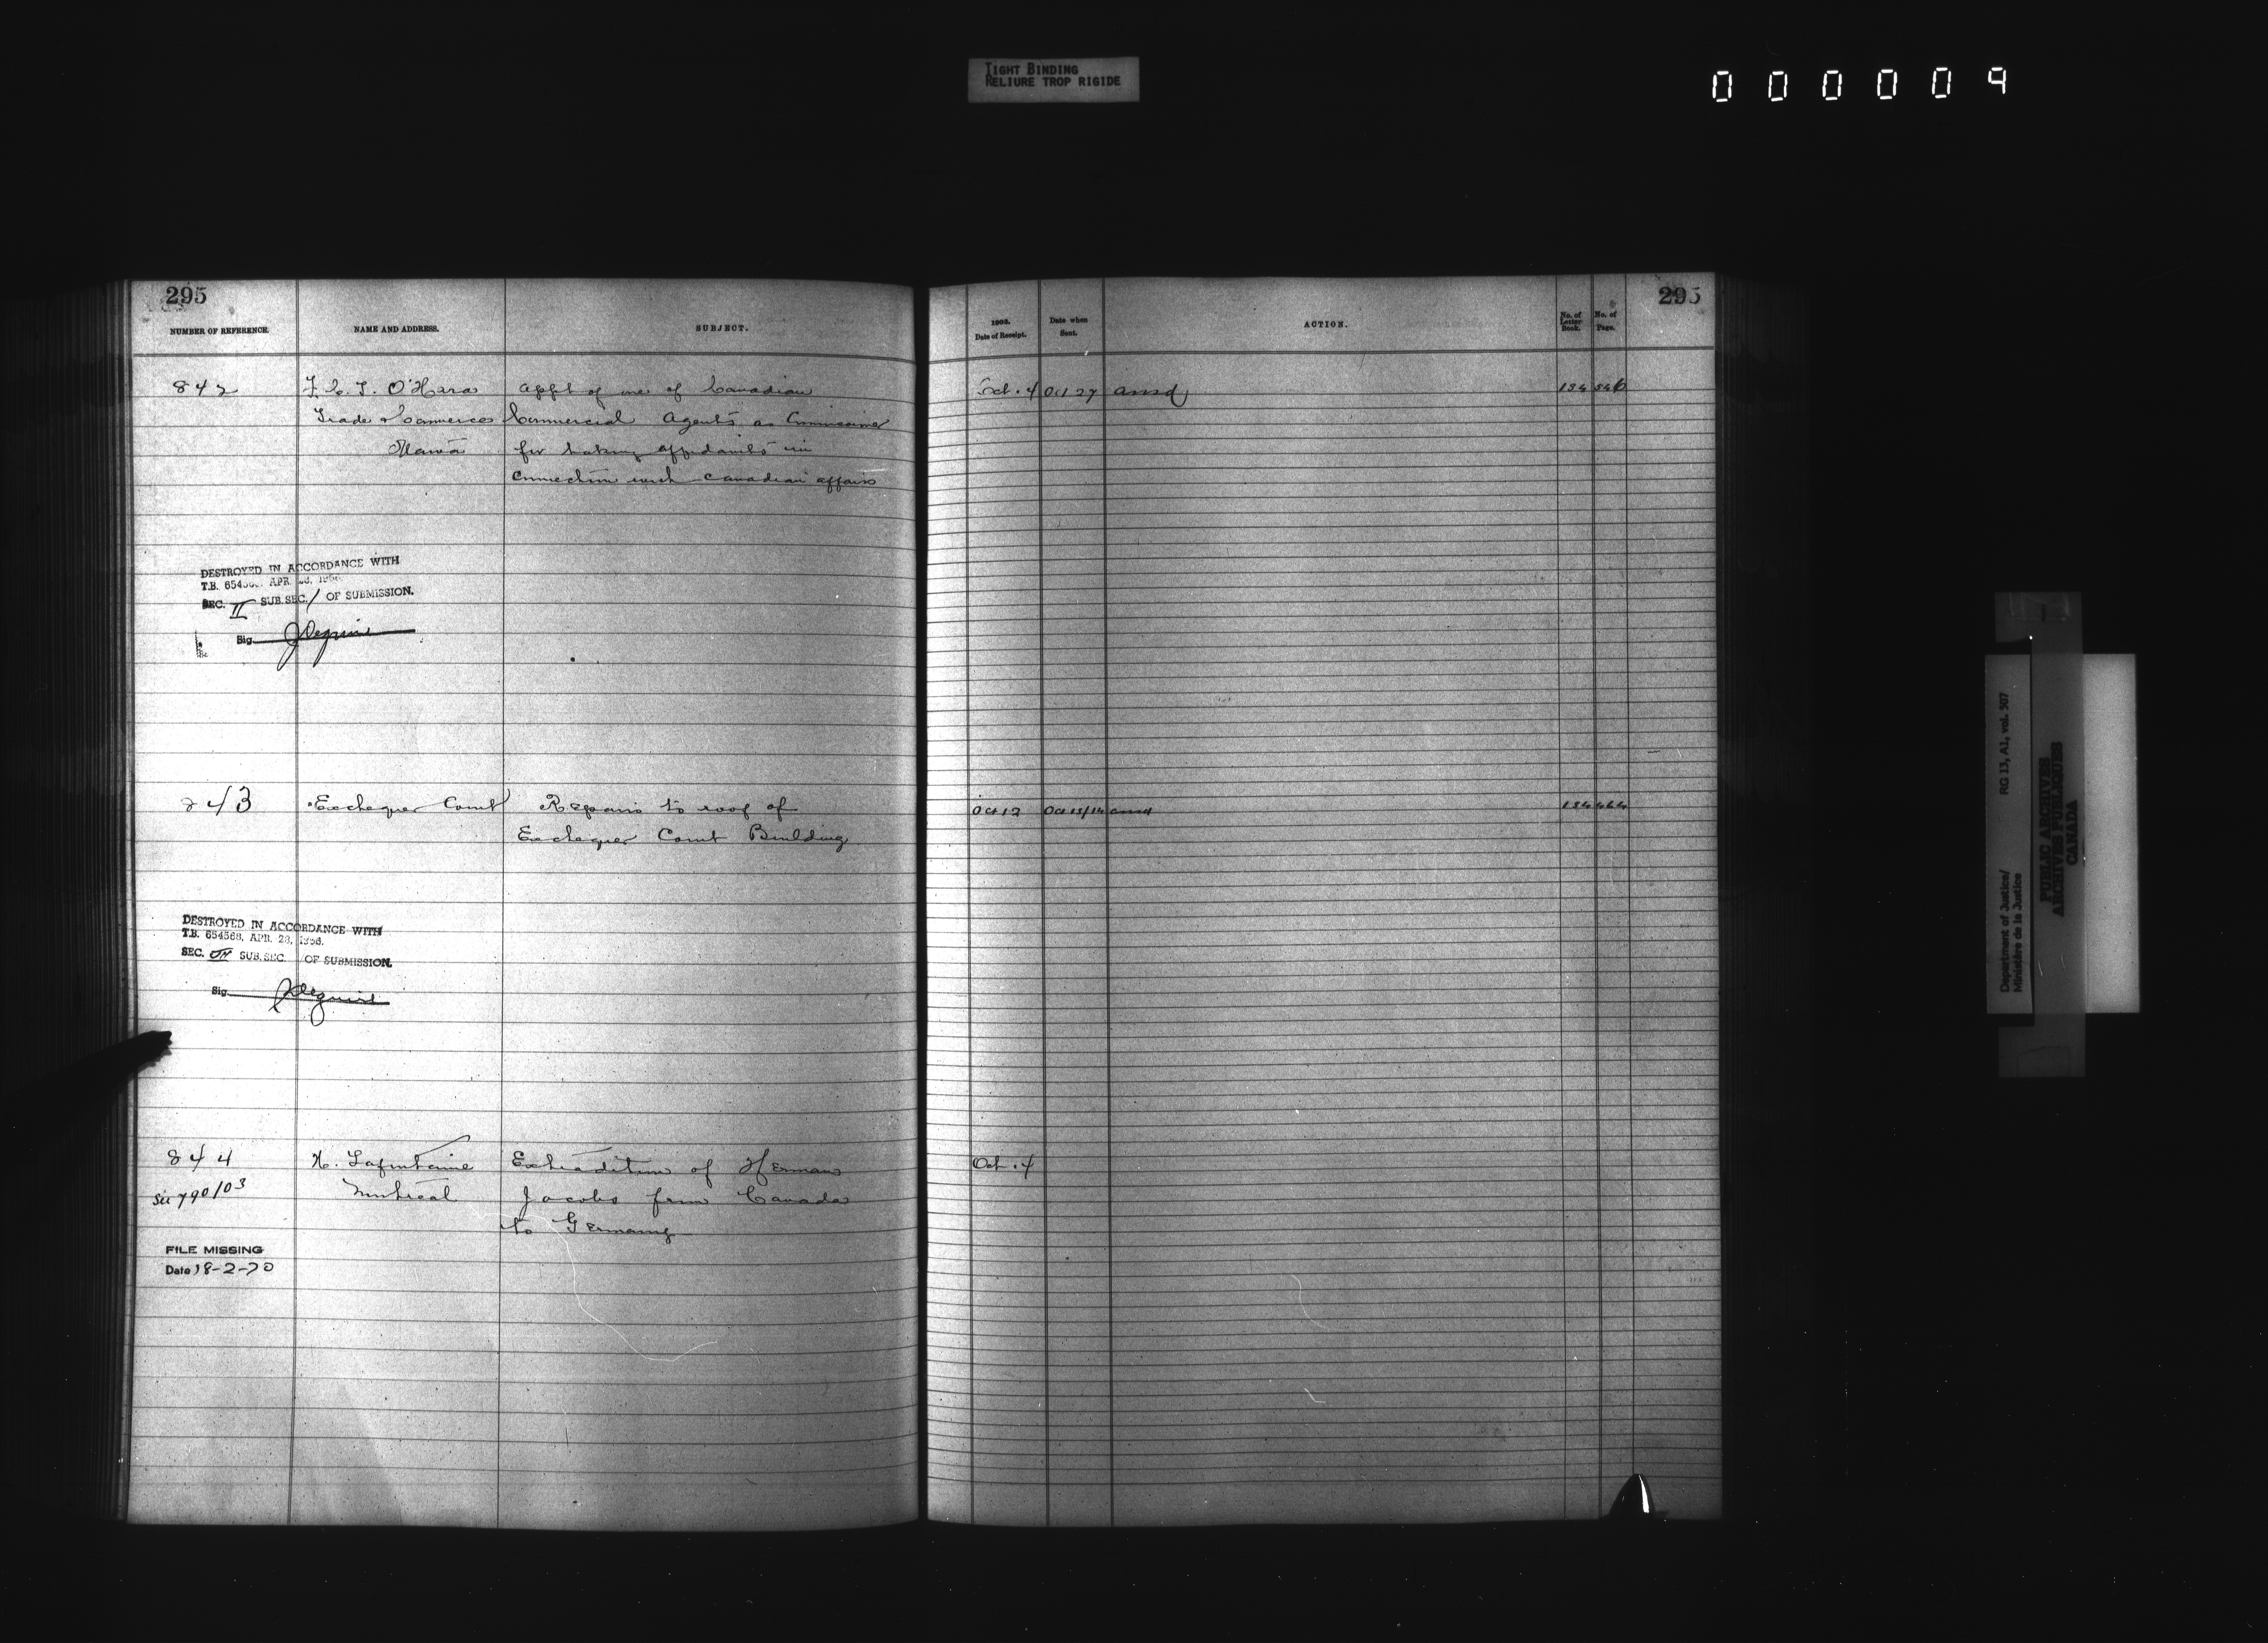 TIGHT BINDING
RELIURE TROP RIGIDE
000009
295
295
NUMBER OF REFERENCE.
NAME AND ADDRESS.
SUBJECT.
1903.
Date of Receipt.
Date when
Sent.
ACTION.
No. of
Letter
Book.
No. of
Page.
842
F. C. T. O'Hara
Appt of one of Canadian
Oct. 4
Oct 27
ansd
134
546
Trade & Commerce
Commercial Agents as Commissioner
Ottawa
for taking affidavits in
connection with Canadian affairs
DESTROYED IN ACCORDANCE WITH
T.B. APR.
SEC. II SUB.SEC. / OF SUBMISSION.
Sig.
843
Exchequer Court
Repairs to roof of
Oct 12
Oct 13/14
ansd
134
464
Exchequer Court Building
DESTROYED IN ACCORDANCE WITH
T.B. 654568, APR. 28, 1956.
SEC. SUB.SEC. OF SUBMISSION.
Sig.
844
H. Lafontaine
Extradition of Herman
Oct. 4
See 790/03
Montreal
Jacobs from Canada
to Germany
FILE MISSING
Date 18-2-70
Department of Justice/
Ministère de la Justice
RG 13, A1, vol. 507
PUBLIC ARCHIVES
ARCHIVES PUBLIQUES
CANADA